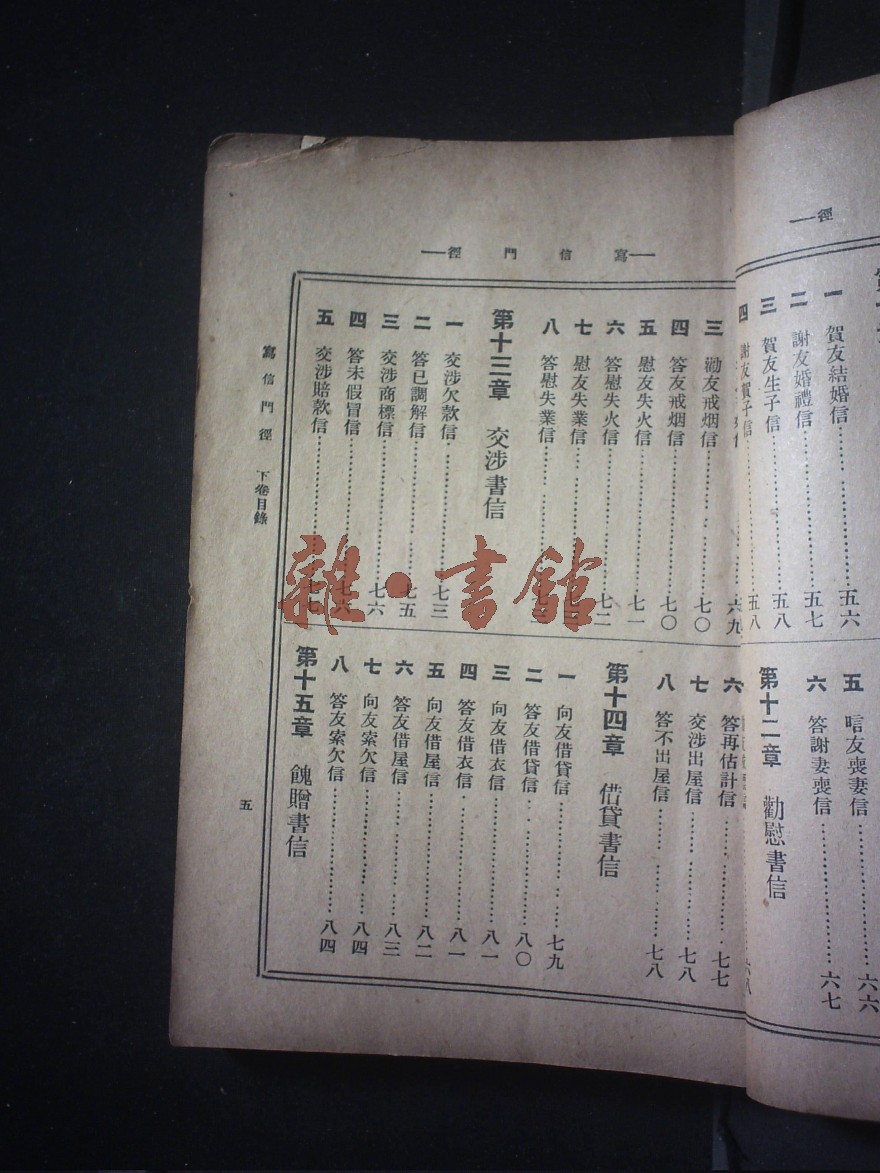 徑
一 賀友結婚信 五六
二 謝友婚禮信 五七
三 賀友生子信 五八
四 謝友賀子信 五八
五 唁友喪妻信 六六
六 答謝妻喪信 六七
第十二章 勸慰書信
六八
寫信門徑
六九
三 勸友戒烟信 七〇
四 答友戒烟信 七〇
五 慰友失火信 七一
六 答慰失火信 七二
七 慰友失業信
八 答慰失業信
第十三章 交涉書信
一 交涉欠款信 七三
二 答已調解信 七五
三 交涉商標信 七六
四 答未假冒信 七六
五 交涉賠款信 七七
六 答再估計信 七七
七 交涉出屋信 七八
八 答不出屋信 七八
第十四章 借貸書信
一 向友借貸信 七九
二 答友借貸信 八〇
三 向友借衣信 八一
四 答友借衣信 八一
五 向友借屋信 八二
六 答友借屋信 八三
七 向友索欠信 八四
八 答友索欠信 八四
第十五章 餽贈書信
寫信門徑 下卷目錄
五
雜·書館